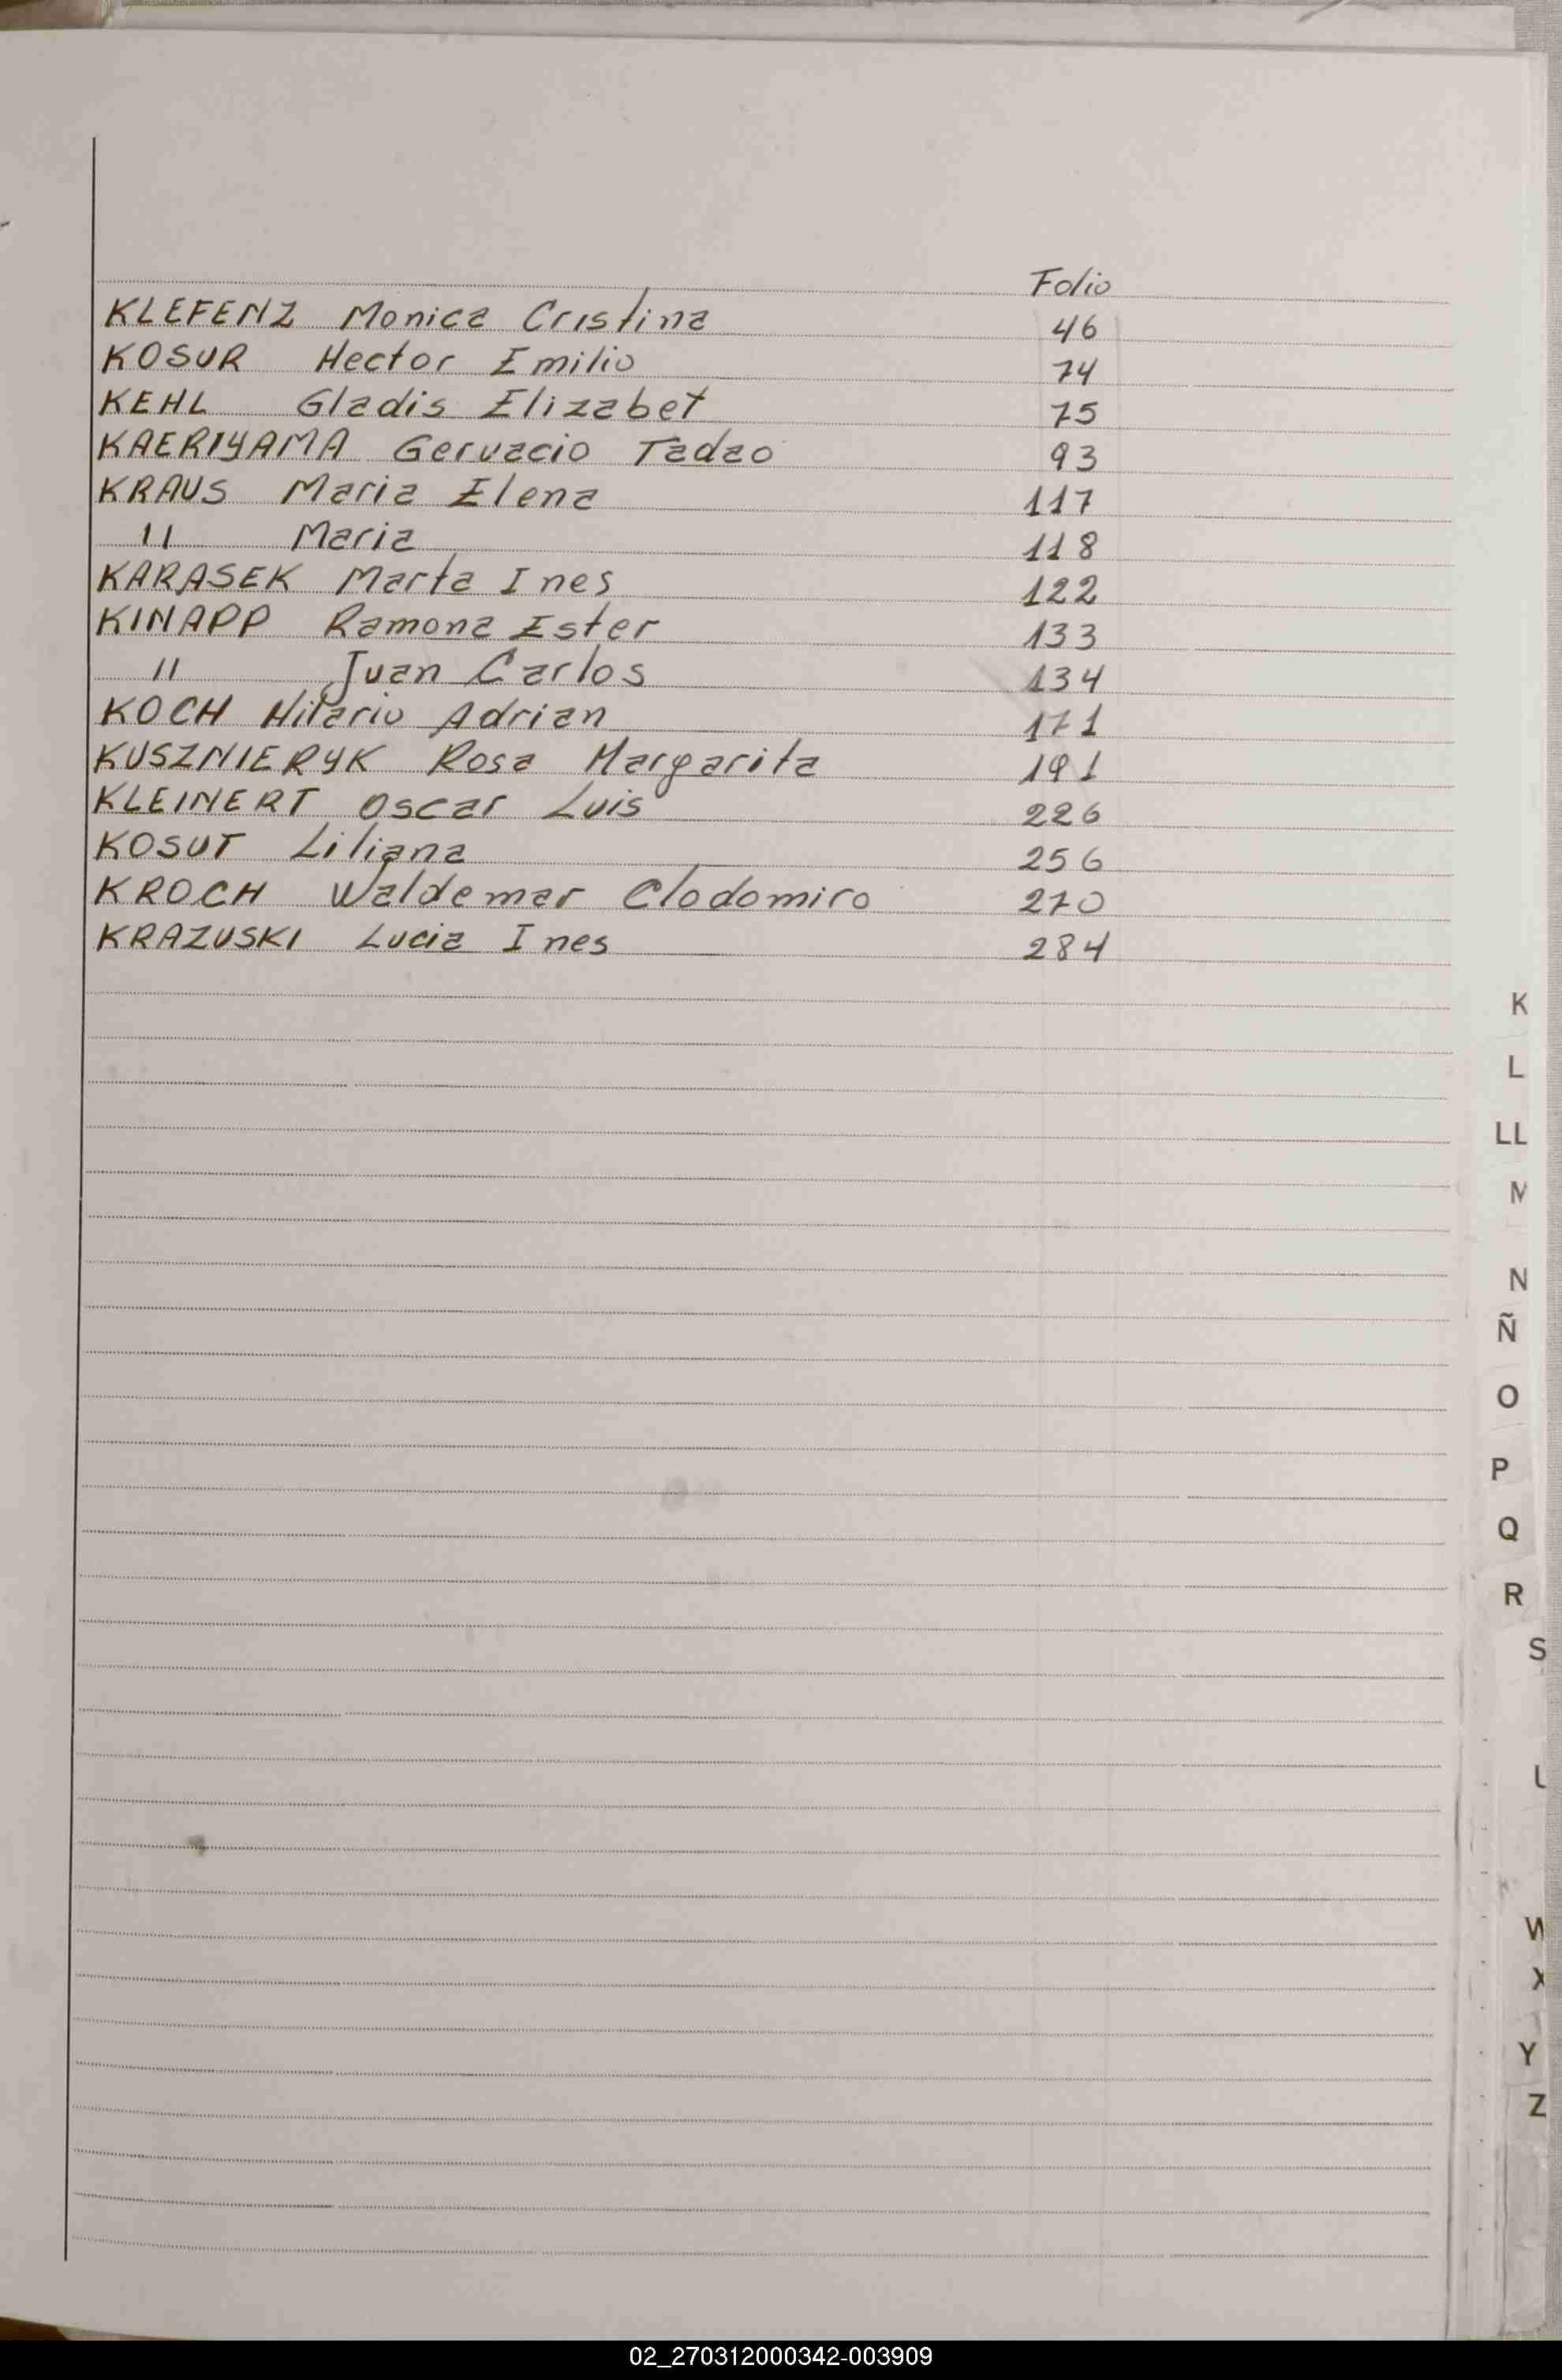 Folio
KLEFENZ Monica Cristina 46
KOSUR Hector Emilio 74
KEHL Gladis Elizabet 75
KAERIYAMA Gervacio Tadao 93
KRAUS Maria Elena 117
" Maria 118
KARASEK Marta Ines 122
KINAPP Ramona Ester 133
" Juan Carlos 134
KOCH Hilario Adrian 171
KUSZNIERYK Rosa Margarita 191
KLEINERT Oscar Luis 226
KOSUT Liliana 256
KROCH Waldemar Clodomiro 270
KRAZUSKI Lucia Ines 284
K
L
LL
M
N
Ñ
O
P
Q
R
S
U
W
X
Y
Z
02_270312000342-003909